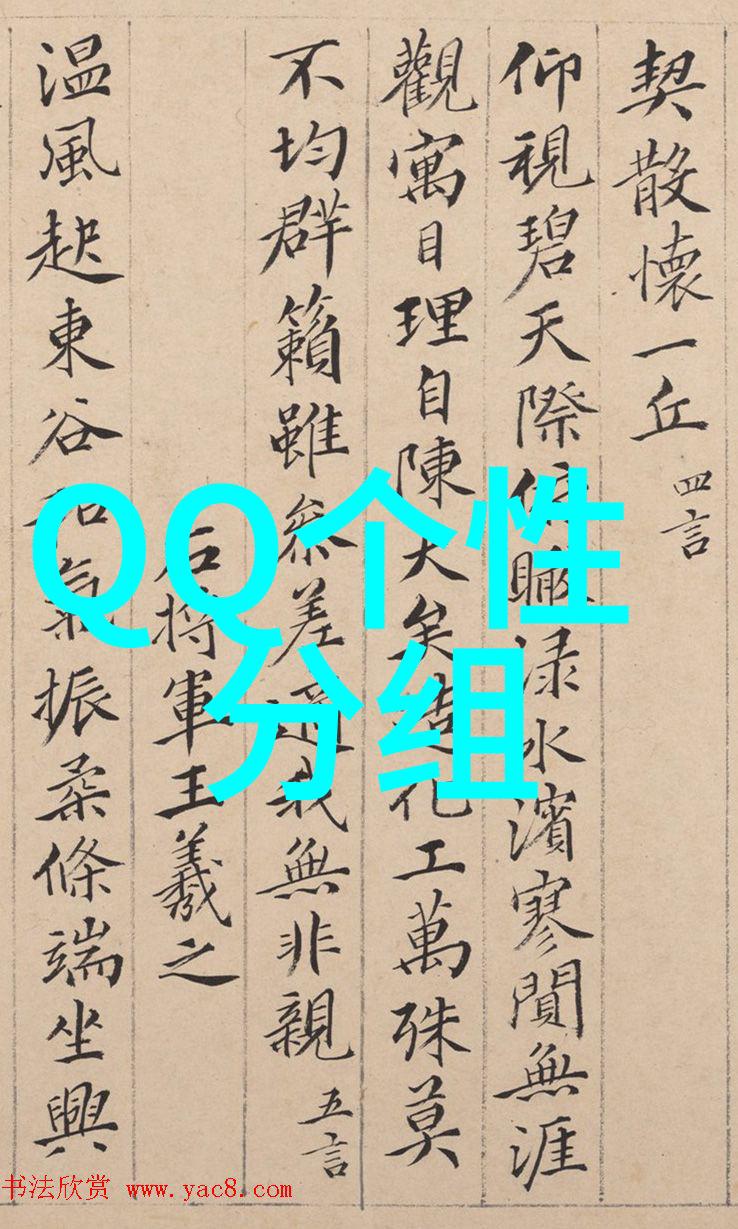 契散懷一丘 四言
仰視碧天際俯瞰渌水濱寥閴無涯
觀寓目理自陳大矣造化工萬殊莫
不均群籟雖參差適我無非親 五言
右將軍王羲之
温風起東谷和氣振柔條端坐興
QQ个性
分组
书法欣赏 www.yac8.com